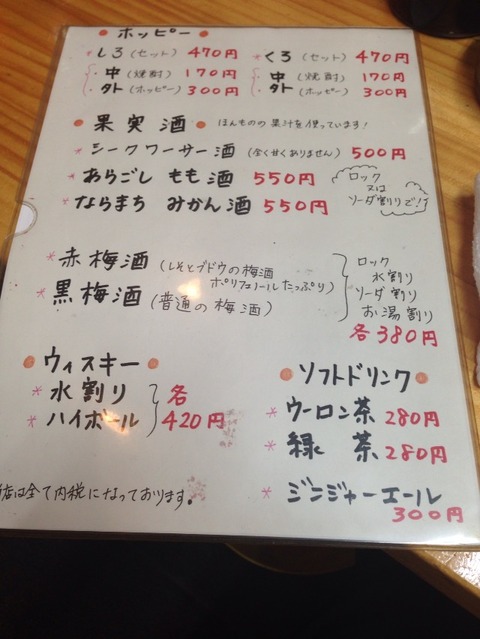 ホッピー
しろ(セット) 470円
中(焼酎) 170円
外(ホッピー) 300円
くろ(セット) 470円
中(焼酎) 170円
外(ホッピー) 300円
果実酒 ほんものの果汁を使っています!
シークワーサー酒(全く甘くありません) 500円
あらごし もも酒 550円
ならまち みかん酒 550円
ロック
又は
ソーダ割りで!!
赤梅酒(しそとブドウの梅酒
ポリフェノールたっぷり)
黒梅酒(普通の梅酒)
ロック
水割り
ソーダ割り
お湯割り
各380円
ウィスキー
水割り
ハイボール
各
420円
ソフトドリンク
ウーロン茶 280円
緑茶 280円
ジンジャーエール
300円
店は全て内税になっております。